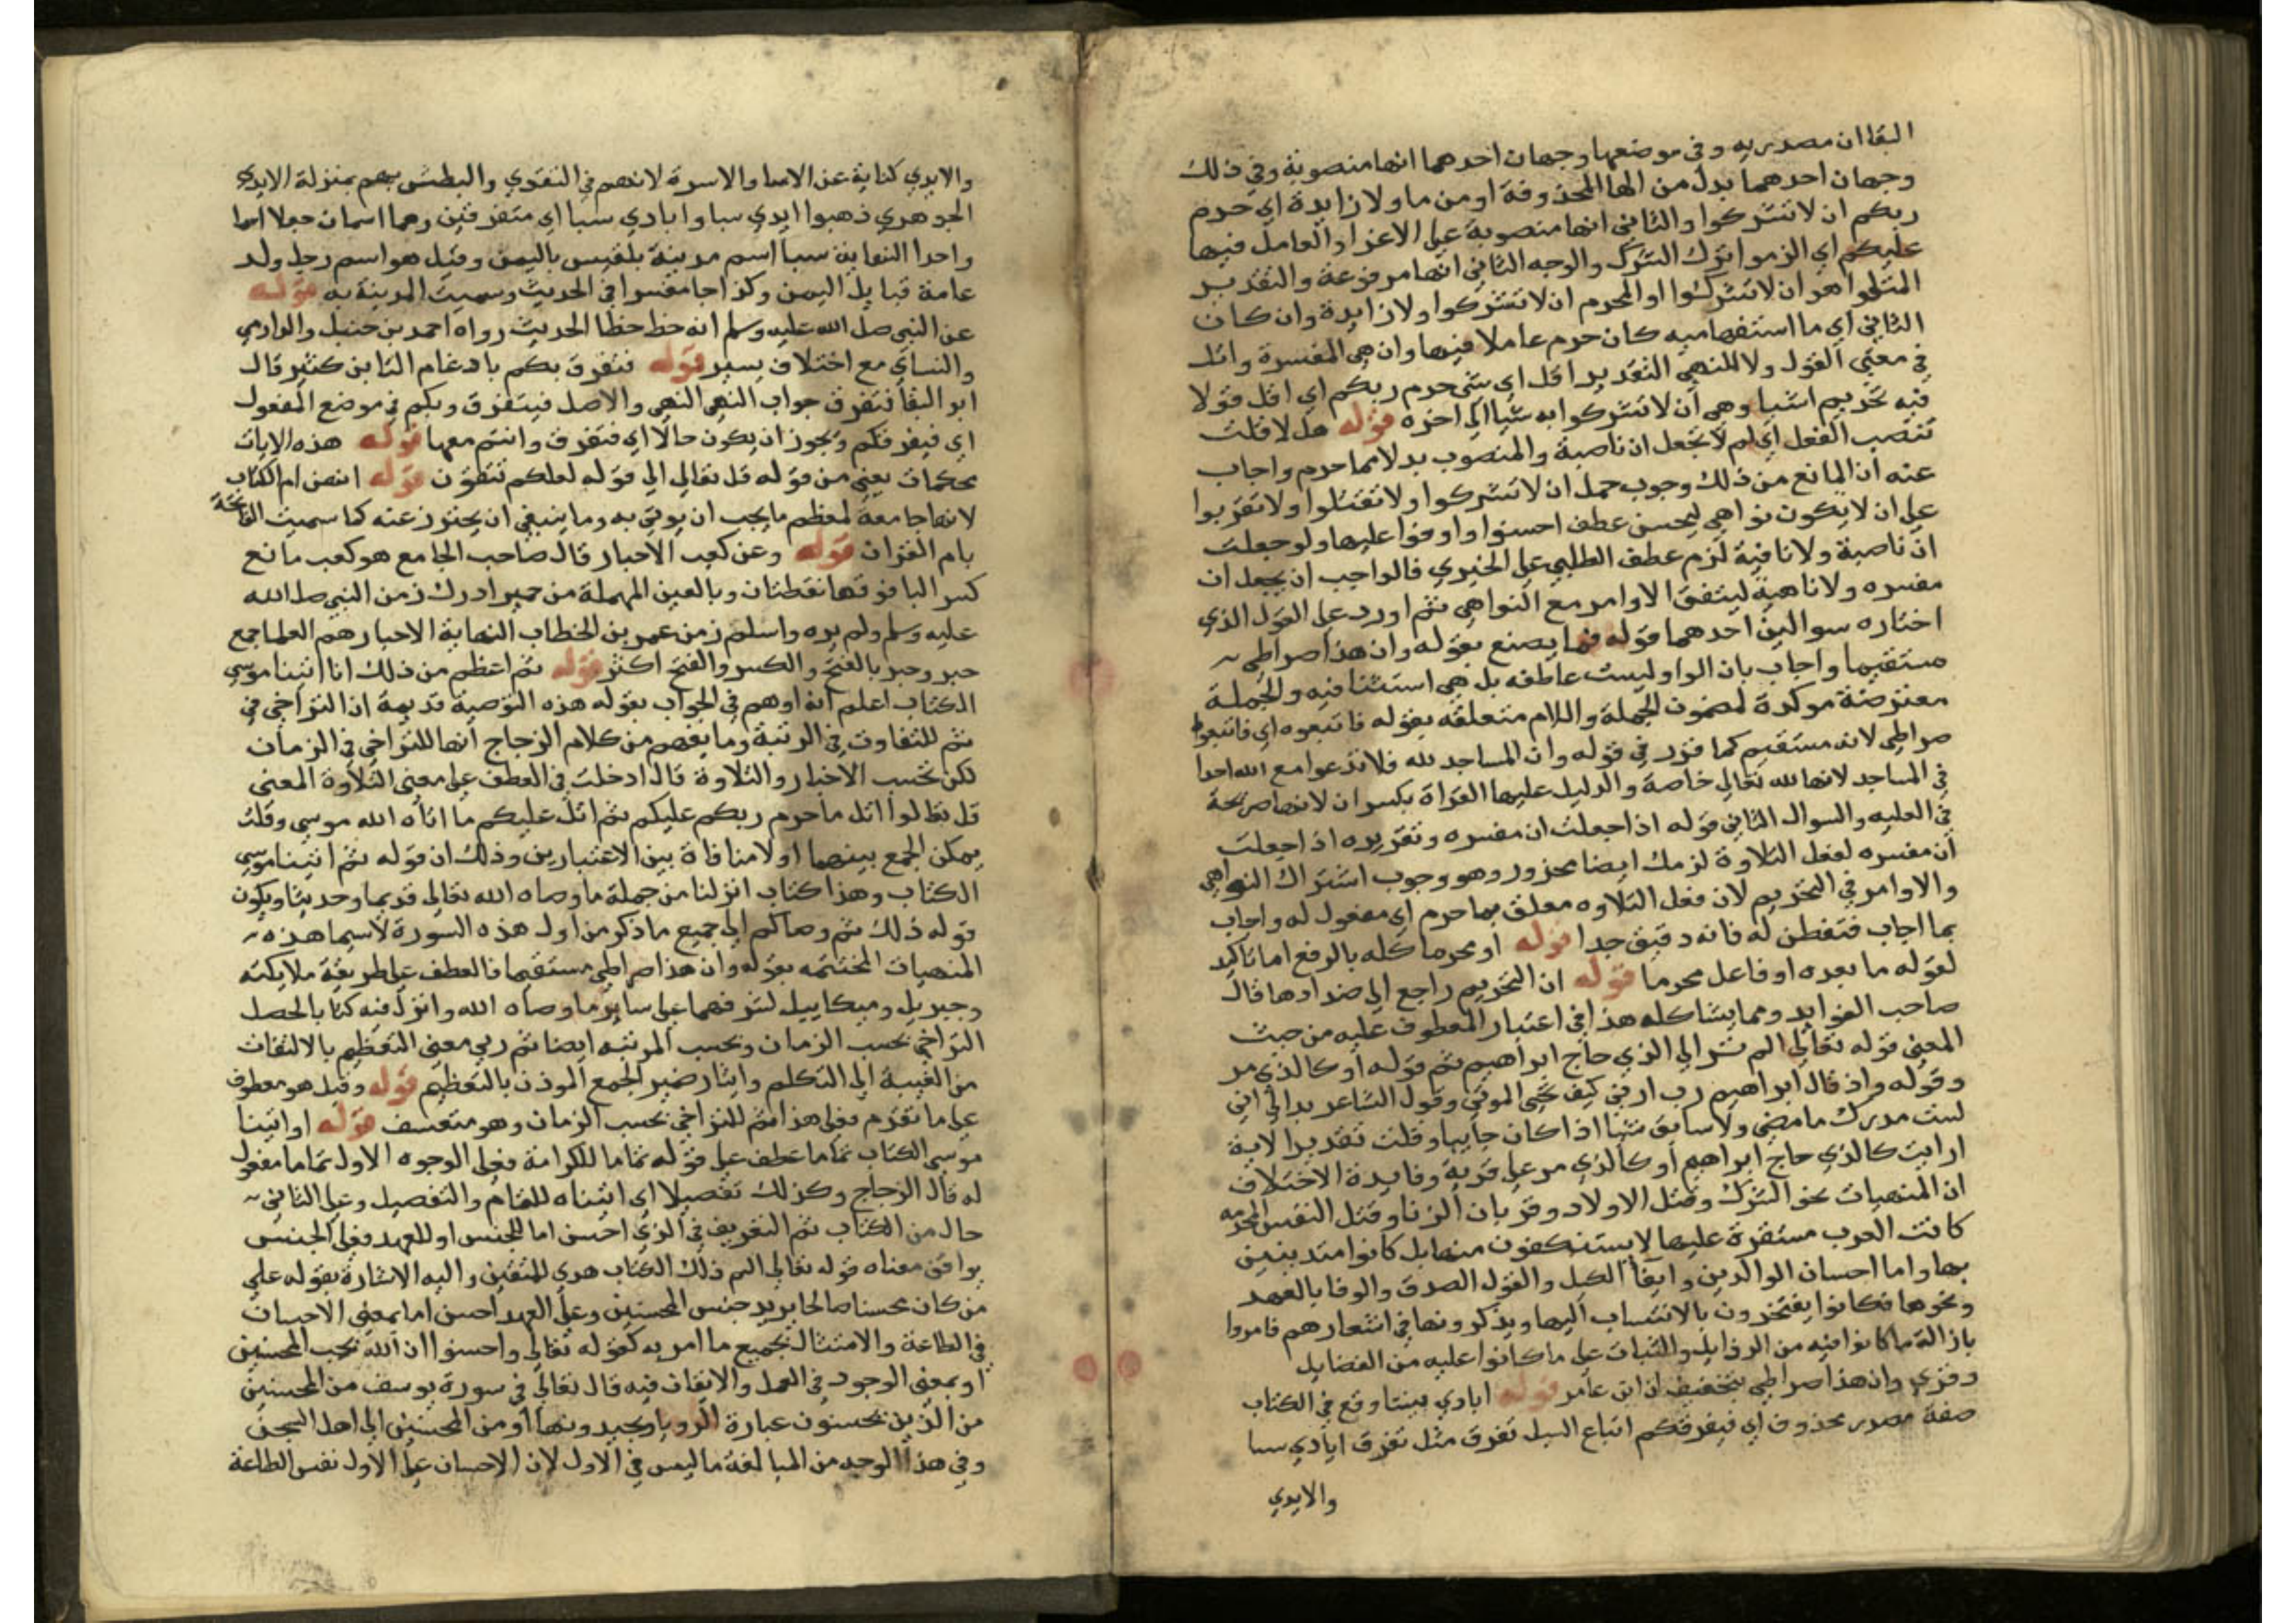 البقا ان مصدريه وفي موضعها وجهان احدهما انها منصوبة وفي ذلك
وجهان احدهما بدل من الها المحذوفة او من ما ولا زايدة اي حرم
ربكم ان لا تشركوا والثاني انها منصوبة على الاغرا والعامل فيها
عليكم اي الزموا ترك الشرك والوجه الثاني انها مرفوعة والتقدير
المتلوا هو ان لا تشركوا او المحرم ان لا تشركوا ولا زايدة وان كان
الثاني اي ما استفهاميه كان حرم عاملا فيها وان هي المفسرة واتل
في معنى القول ولا للنهي التقدير اقل اي شي حرم ربكم اي اقل قولا
فيه تحريم اشيا وهي ان لا تشركوا به شيا الى اخره قوله هل لا قلت
تنصب الفعل اي لم لا تجعل ان ناصبة والمنصوب بدلا مما حرم واجاب
عنه ان المانع من ذلك وجوب حمل ان لا تشركوا ولا تقتلوا ولا تقربوا
على ان لا يكون نواهي ليحسن عطف احسنوا واوفوا عليها ولو جعلت
ان ناصبة ولا نافية لزم عطف الطلبي على الخبري فالواجب ان يجعل ان
مفسره ولا ناهية ليتفق الاوامر مع النواهي ثم اورد على القول الذي
اختاره سوالين احدهما قوله فما يصنع بقوله وان هذا صراطي
مستقيما واجاب بان الواو ليست عاطفه بل هي استئنافيه والجملة
معترضة موكدة لمضمون الجملة واللام متعلقه بقوله فاتبعوه اي فاتبعوا
صراطي لانه مستقيم كما قرر في قوله وان المساجد لله فلا تدعوا مع الله احدا
في المساجد لانها لله تعالى خاصة والدليل عليها القراة بكسر ان لانها صريحة
في العليه والسوال الثاني قوله اذا جعلت ان مفسره وتقريره اذا جعلت
ان مفسره لفعل التلاوة لزمك ايضا محذور وهو وجوب اشتراك النواهي
والاوامر في التحريم لان فعل التلاوه معلق بما حرم اي مفعول له واجاب
بما اجاب فتفطن له فانه دقيق جدا قوله او محرما كله بالرفع اما تاكيد
لقوله ما بعده او فاعل محرما قوله ان التحريم راجع الى ضدادها قال
صاحب الفرايد ومما يشاكله هذا في اعتبار المعطوف عليه من حيث
المعنى قوله تعالى الم تر الى الذي حاج ابراهيم ثم قوله او كالذي مر
وقوله واذ قال ابراهيم رب ارني كيف تحيي الموتى وقول الشاعر بدا لي اني
لست مدرك ما مضى ولا سابق شيا اذا كان جاييا وقلت تقدير الاية
ارايت كالذي حاج ابراهيم او كالذي مر على قرية وفايدة الاختلاف
ان المنهيات نحو الشرك وقتل الاولاد وقربان الزنا وقتل النفس المحرمه
كانت العرب مستقرة عليها لا يستنكفون منها بل كانوا متدينين
بها واما احسان الوالدين وايفا الكيل والقول الصدق والوفا بالعهد
ونحوها فكانوا يفتخرون بالانتساب اليها ويذكرونها في اشعارهم فامروا
بازالة ما كانوا فيه من الرذايل والثبات على ما كانوا عليه من الفضايل
وقري وان هذا صراطي بتخفيف ان ابن عامر قوله ايادي سبتا وقع في الكتاب
صفة مصدر محذوف اي فيفرقكم اتباع السبل تفرق مثل تفرق ايادي سبا
والايدي
والايدي كناية عن الابنا والاسرة لانهم في التقوي والبطش بهم بمنزلة الايدي
الجوهري ذهبوا ايدي سبا وايادي سبا اي متفرقين وهما اسمان جعلا اسما
واحدا النهاية سبا اسم مدينة بلقيس باليمن وقيل هو اسم رجل ولد
عامة قبايل اليمن وكذا جا مفسرا في الحديث وسميت المدينة به قوله
عن النبي صلى الله عليه وسلم انه خط خطا الحديث رواه احمد بن حنبل والدارمي
والنساي مع اختلاف يسير قوله فتفرق بكم بادغام التا بن كثير قال
ابو البقا فتفرق جواب النهي والاصل فيتفرق وبكم في موضع المفعول
اي فيفرقكم ويجوز ان يكون حالا اي فتفرق وانتم معها قوله هذه الايات
محكمات يعني من قوله قل تعالى الى قوله لعلكم تتقون قوله انهن ام الكتاب
لانها جامعة لمعظم ما يجب ان يوتي به وما ينبغي ان يحترز عنه كما سميت الفاتحة
بام القران قوله وعن كعب الاحبار قال صاحب الجامع هو كعب ماتع
كسر التا فوقها نقطتان وبالعين المهملة من حمير ادرك زمن النبي صلى الله
عليه وسلم ولم يره واسلم زمن عمر بن الخطاب النهاية الاحبار هم العلما جمع
حبر وحبر بالفتح والكسر والفتح اكثر قوله ثم اعظم من ذلك انا اتينا موسى
الكتاب اعلم انه اوهم في الجواب بقوله هذه التوصية قديمة ان التراخي في
ثم للتفاوت في الرتبة وما يفهم من كلام الزجاج انها للتراخي في الزمان
لكن بحسب الاخبار والتلاوة قال ادخلت في العطف على معنى التلاوة المعنى
قل تعالوا اتل ما حرم ربكم عليكم ثم اتل عليكم ما اتاه الله موسى وقلت
يمكن الجمع بينهما اولا منافاة بين الاعتبارين وذلك ان قوله ثم اتينا موسى
الكتاب وهذا كتاب انزلنا من جملة ما وصاه الله تعالى قديما وحديثا ويكون
قوله ذلك ثم وصاكم الى جميع ما ذكر من اول هذه السورة لا سيما هذه
المنهيات المختتمه بقوله وان هذا صراطي مستقيما فالعطف على طريقة ملايكته
وجبريل وميكاييل لشرفهما على ساير ما وصاه الله وانزل فيه كتابا لحصل
التراخي بحسب الزمان وبحسب المرتبه ايضا ثم ربي معنى التعظيم بالالتفات
من الغيبة الى التكلم وايثار ضمير الجمع الموذن بالتعظيم قوله وقيل هو معطوف
على ما تقدم فعلى هذا ثم للتراخي بحسب الزمان وهو متعسف قوله او اتينا
موسى الكتاب تماما عطف على قوله تماما للكرامة فعلى الوجوه الاول تماما مفعول
له قال الزجاج وكذلك تفصيلا اي اتيناه للتمام والتفصيل وعلى الثاني
حال من الكتاب ثم التعريف في الذي احسن اما للجنس او للعهد فعلى الجنس
يوافق معناه قوله تعالى الم ذلك الكتاب هدى للمتقين واليه الاشارة بقوله على
من كان محسنا صالحا يريد جنس المحسنين وعلى العهد احسن اما بمعنى الاحسان
في الطاعة والامتثال بجميع ما امر به كقوله تعالى واحسنوا ان الله يحب المحسنين
او بمعنى الوجود في العمل والاتقان فيه قال تعالى في سورة يوسف من المحسنين
من الذين يحسنون عبارة الرويا ويجيدونها او من المحسنين الى اهل السجن
وفي هذا الوجه من المبالغة ما ليس في الاول لان الاحسان على الاول نفس الطاعة